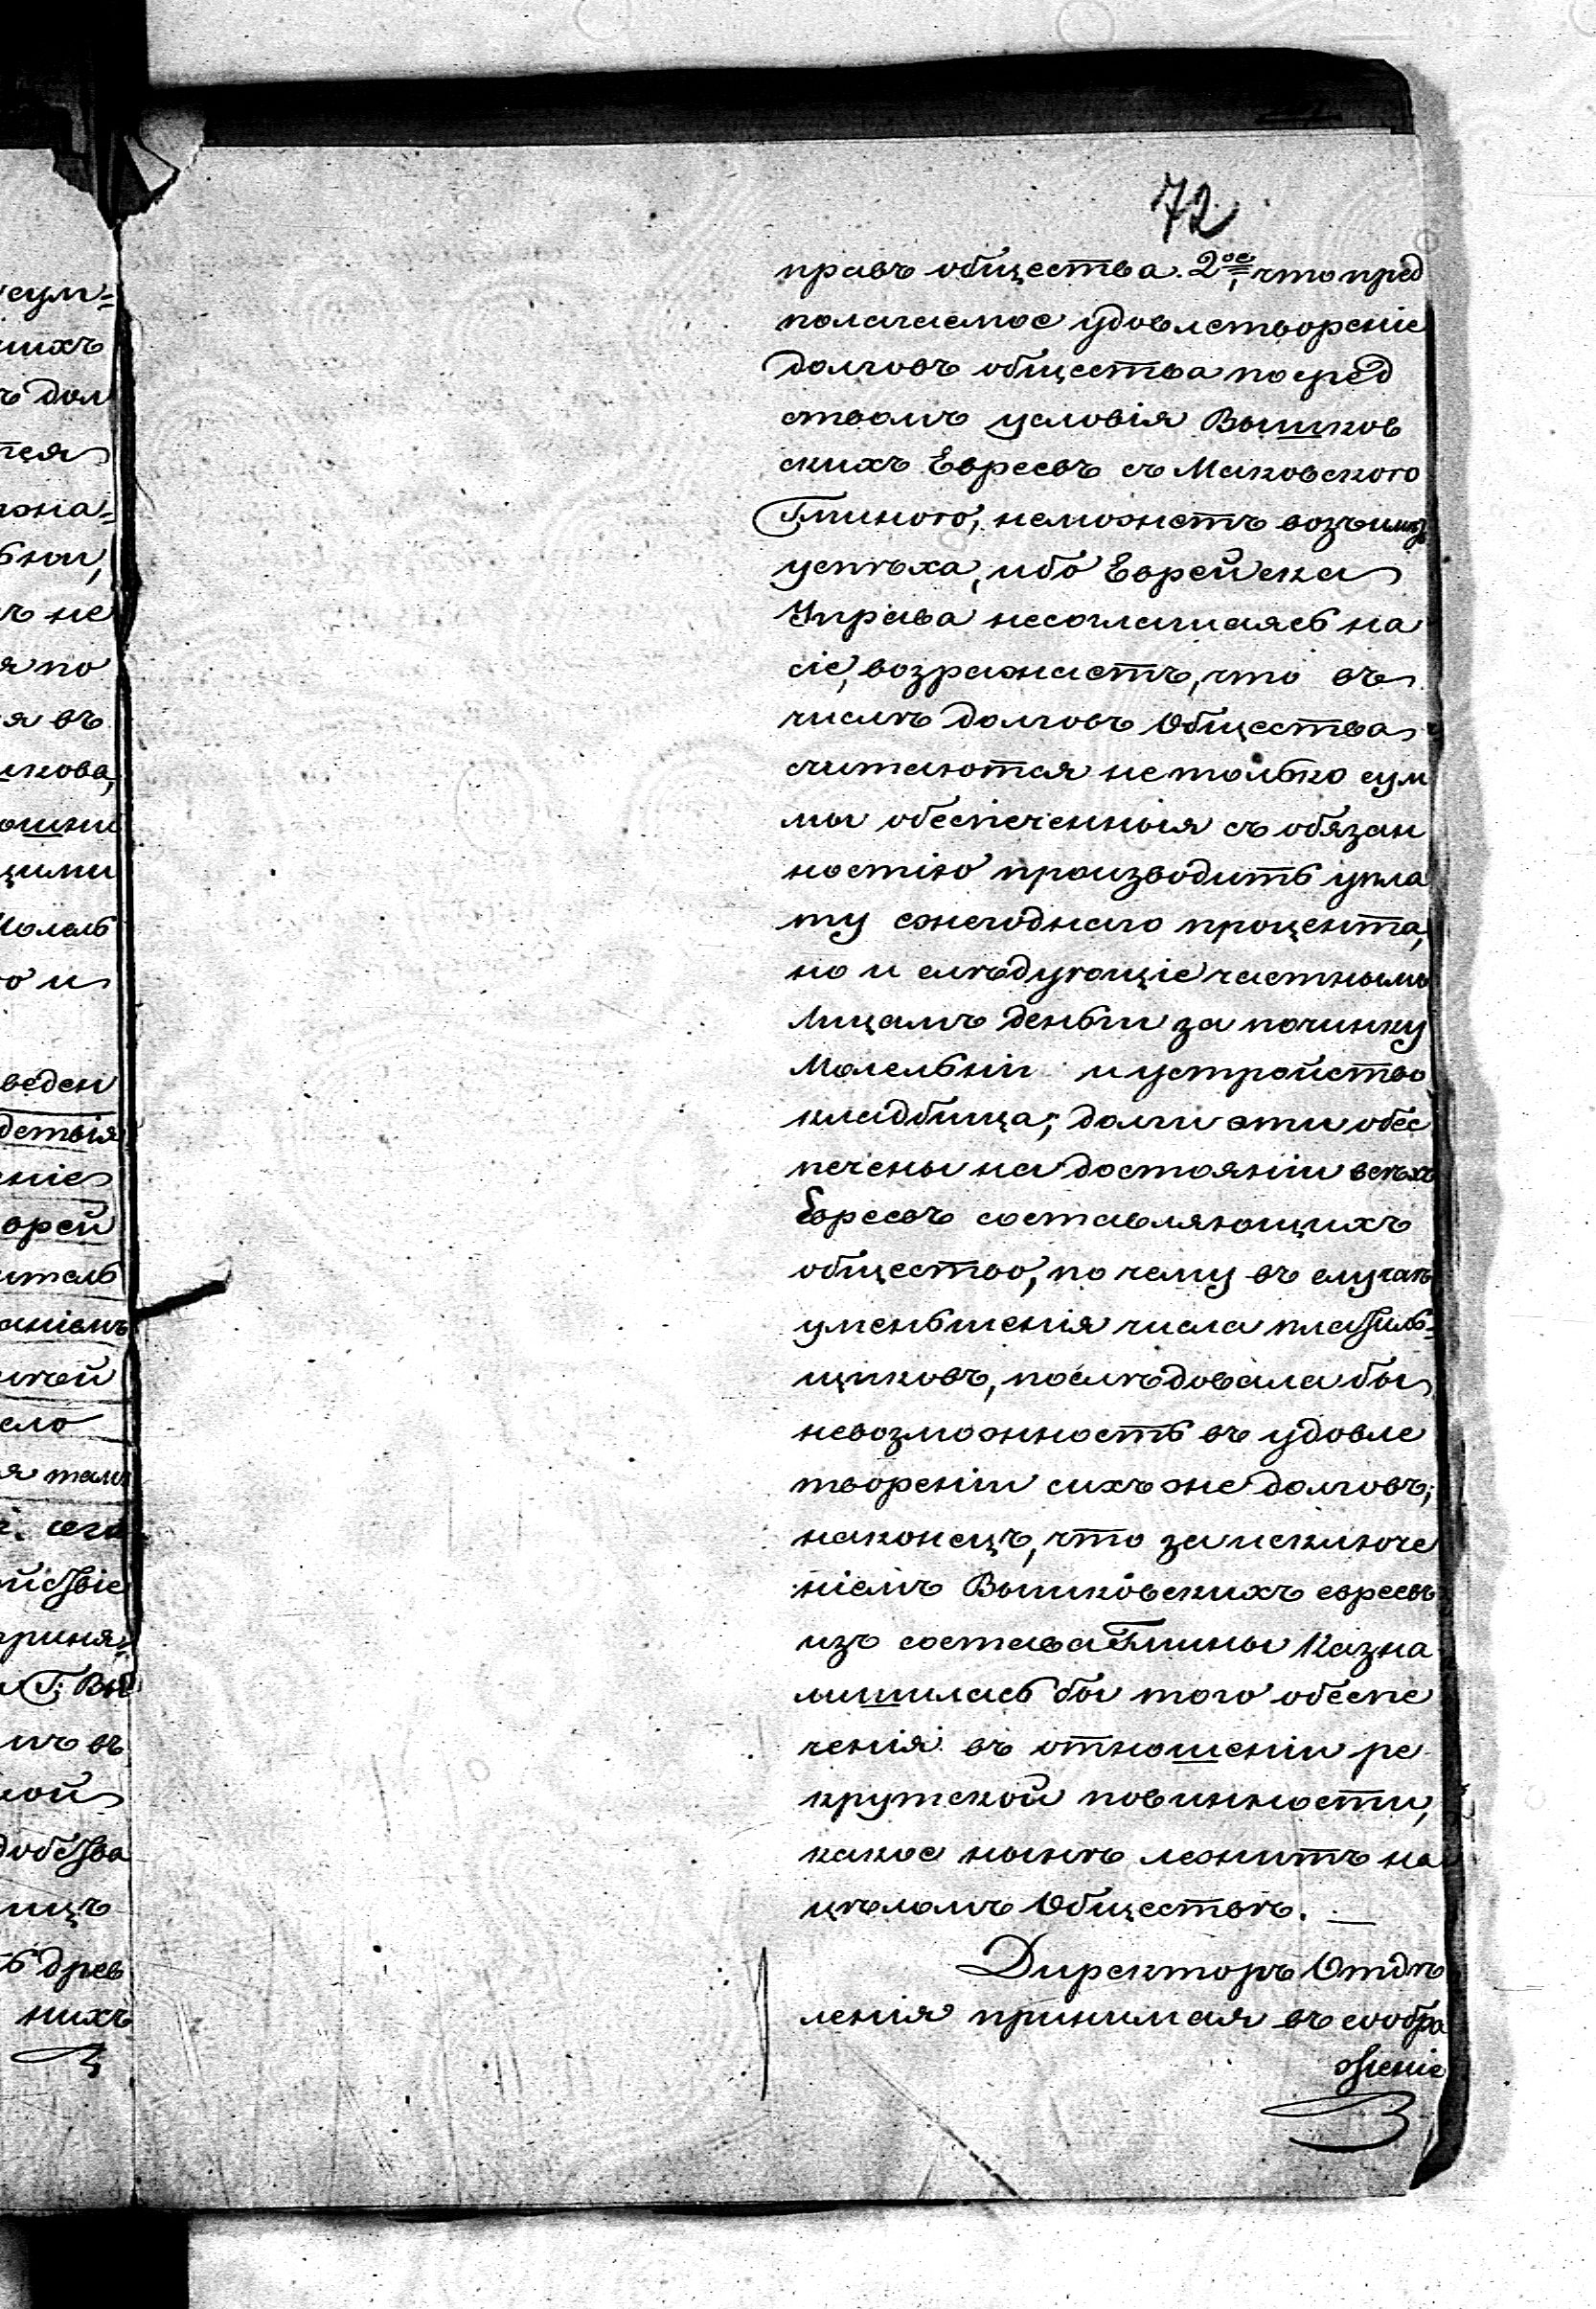 72
правъ общества. 2ое, что пред
полагаемое удовлетвореніе
долговъ общества посред
ствомъ условія Вышков
скихъ Евреевъ съ Маковскою
Гминою, неможетъ возъимѣть
успѣха, ибо Еврейска
Управа несоглашаясь на
сіе, возражаетъ, что въ
числѣ долговъ Общества
считаются не только сум
мы обеспеченныя съ обязан
ностію производить упла
ту ежегоднаго процента,
но и слѣдующіе частнымъ
лицамъ деньги за починку
Молельни и устройство
кладбища; долги эти обес
печены на достояніи всѣхъ
Евреевъ составляющихъ
общество, по чему въ случаѣ
уменьшенія числа платель=
щиковъ, послѣдовала бы
невозможность въ удовле
твореніи сихъ же долговъ;
наконецъ, что за исключе
ніемъ Вышковскихъ евреевъ
изъ состава Гмины Казна
лишилась бы того обеспе
ченія въ отношеніи ре
крутской повинности,
какое нынѣ лежитъ на
цѣломъ Обществѣ. —
Директоръ Отдѣ
ленія принимая въ сообра
женіе
сум=
шихъ
ъ дол
тея
жна=
ьни,
ъ не
я по
я въ
шкова,
ошни
щими
Молель
о и
веден
детыя
ніе
врей
итель
аніемъ
ичей
ело
я тамъ
его
йствіе
приня=
Г: Вы
мъ въ
кой
добства
ицъ
ь древ
нихъ